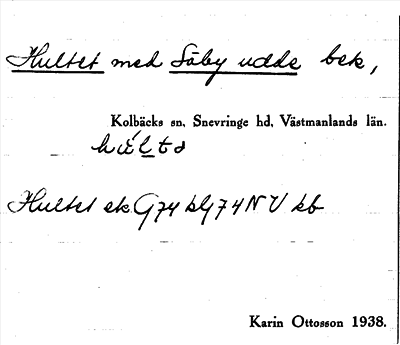 Hultet med Säby udde bek,
Kolbäcks sn, Snevringe hd, Västmanlands län.
Hultet ek. G74 NV kb
Karin Ottosson 1938.